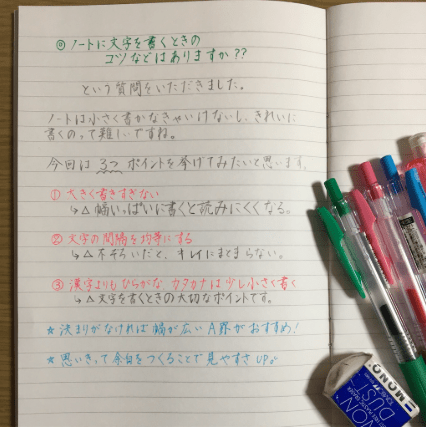 ◎ ノートに文字を書くときの
コツなどはありますか??
という質問をいただきました。
ノートは小さく書かなきゃいけないし、きれいに
書くのって難しいですね。
今回は 3つ ポイントを挙げてみたいと思います。
① 大きく書きすぎない
↳△ 幅いっぱいに書くと読みにくくなる。
② 文字の間隔を均等にする
↳△ 不ぞろいだと、キレイにまとまらない。
③ 漢字よりもひらがな カタカナは少し小さく書く
↳△ 文字を書くときの大切なポイントです。
★ 決まりがなければ幅が広い A罫がおすすめ!
★ 思いきって余白をつくることで見やすさUP♪
MONO
NON
DUST